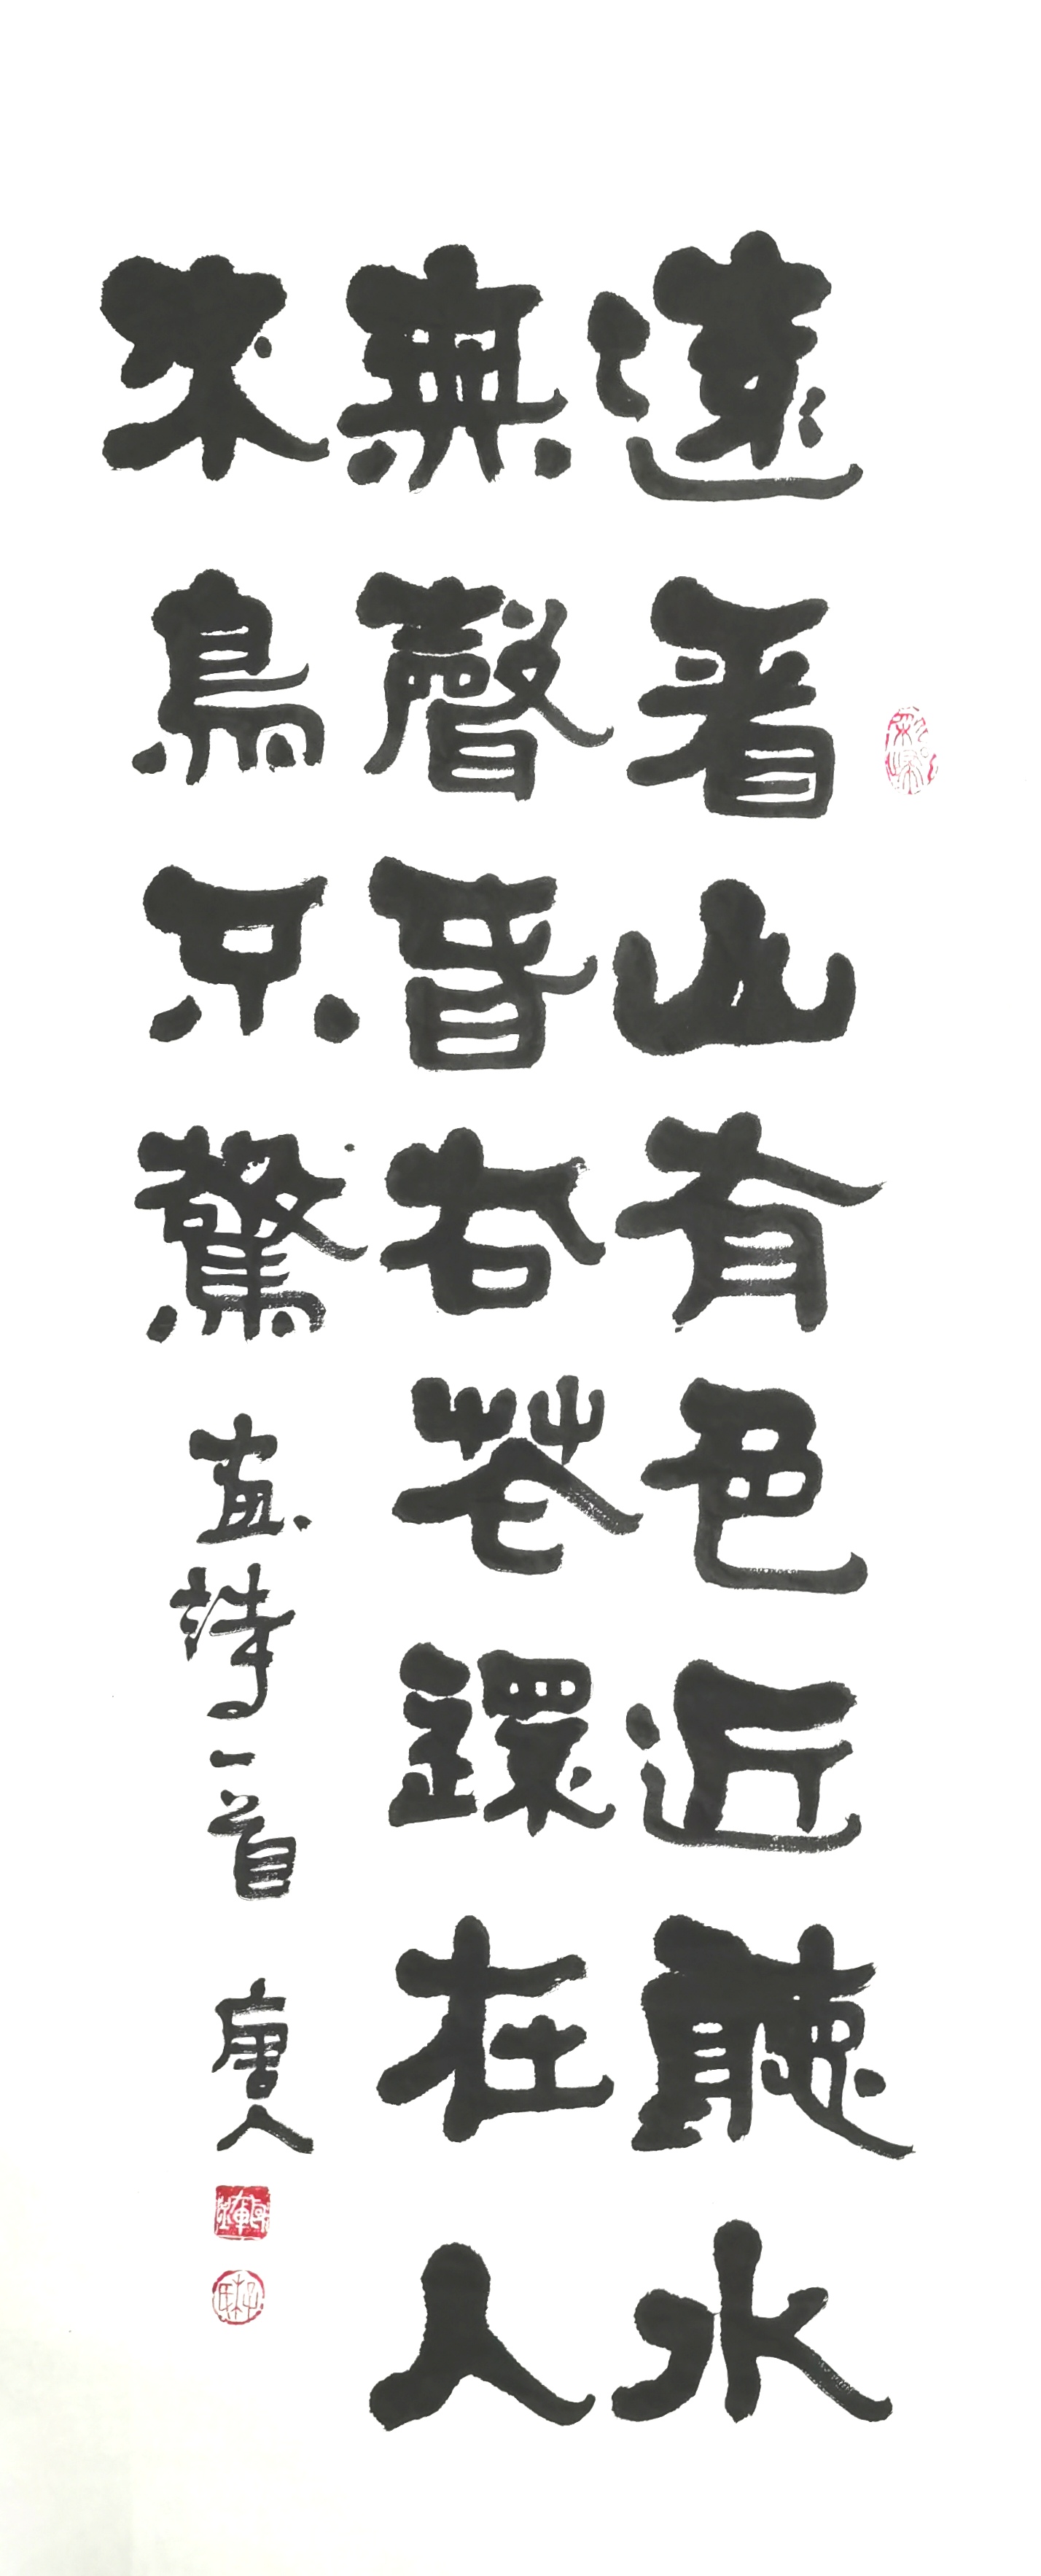 遠看山有色近聽水
無聲春去花還在人
來鳥不驚 畫詩一首 唐人